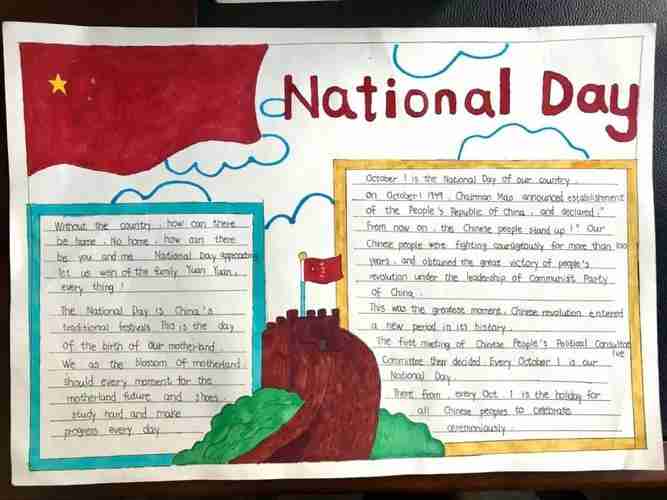 National Day
Without the country, how can there
be home. No home, how can there
be you and me. National Day approaching
let us wen of the family Yuan Yuan,
every thing!
The National Day is China's
traditional festivals This is the day
of the birth of our motherland.
We as the blossom of motherland.
should every moment for the
motherland future and shoes.
study hard and make
progress every day
October 1 is the National Day of our country.
on October 1 1949, Chairman Mao announced establishment
of the People's Republic of China, and declared,"
From now on, the Chinese people stand up!" Our
Chinese people were fighting courageously for more than 100
years, and obtained the great victory of people's
revolution under the leadership of Communist Party
of China.
This was the greatest moment, Chinese revolution entered
a new period in its history.
The first meeting of Chinese People's Political Consultative
Committee then decided Every October 1 is our
National Day
There from, every Oct. 1 is the holiday for
all Chinese peoples to celebrate
ceremoniously.